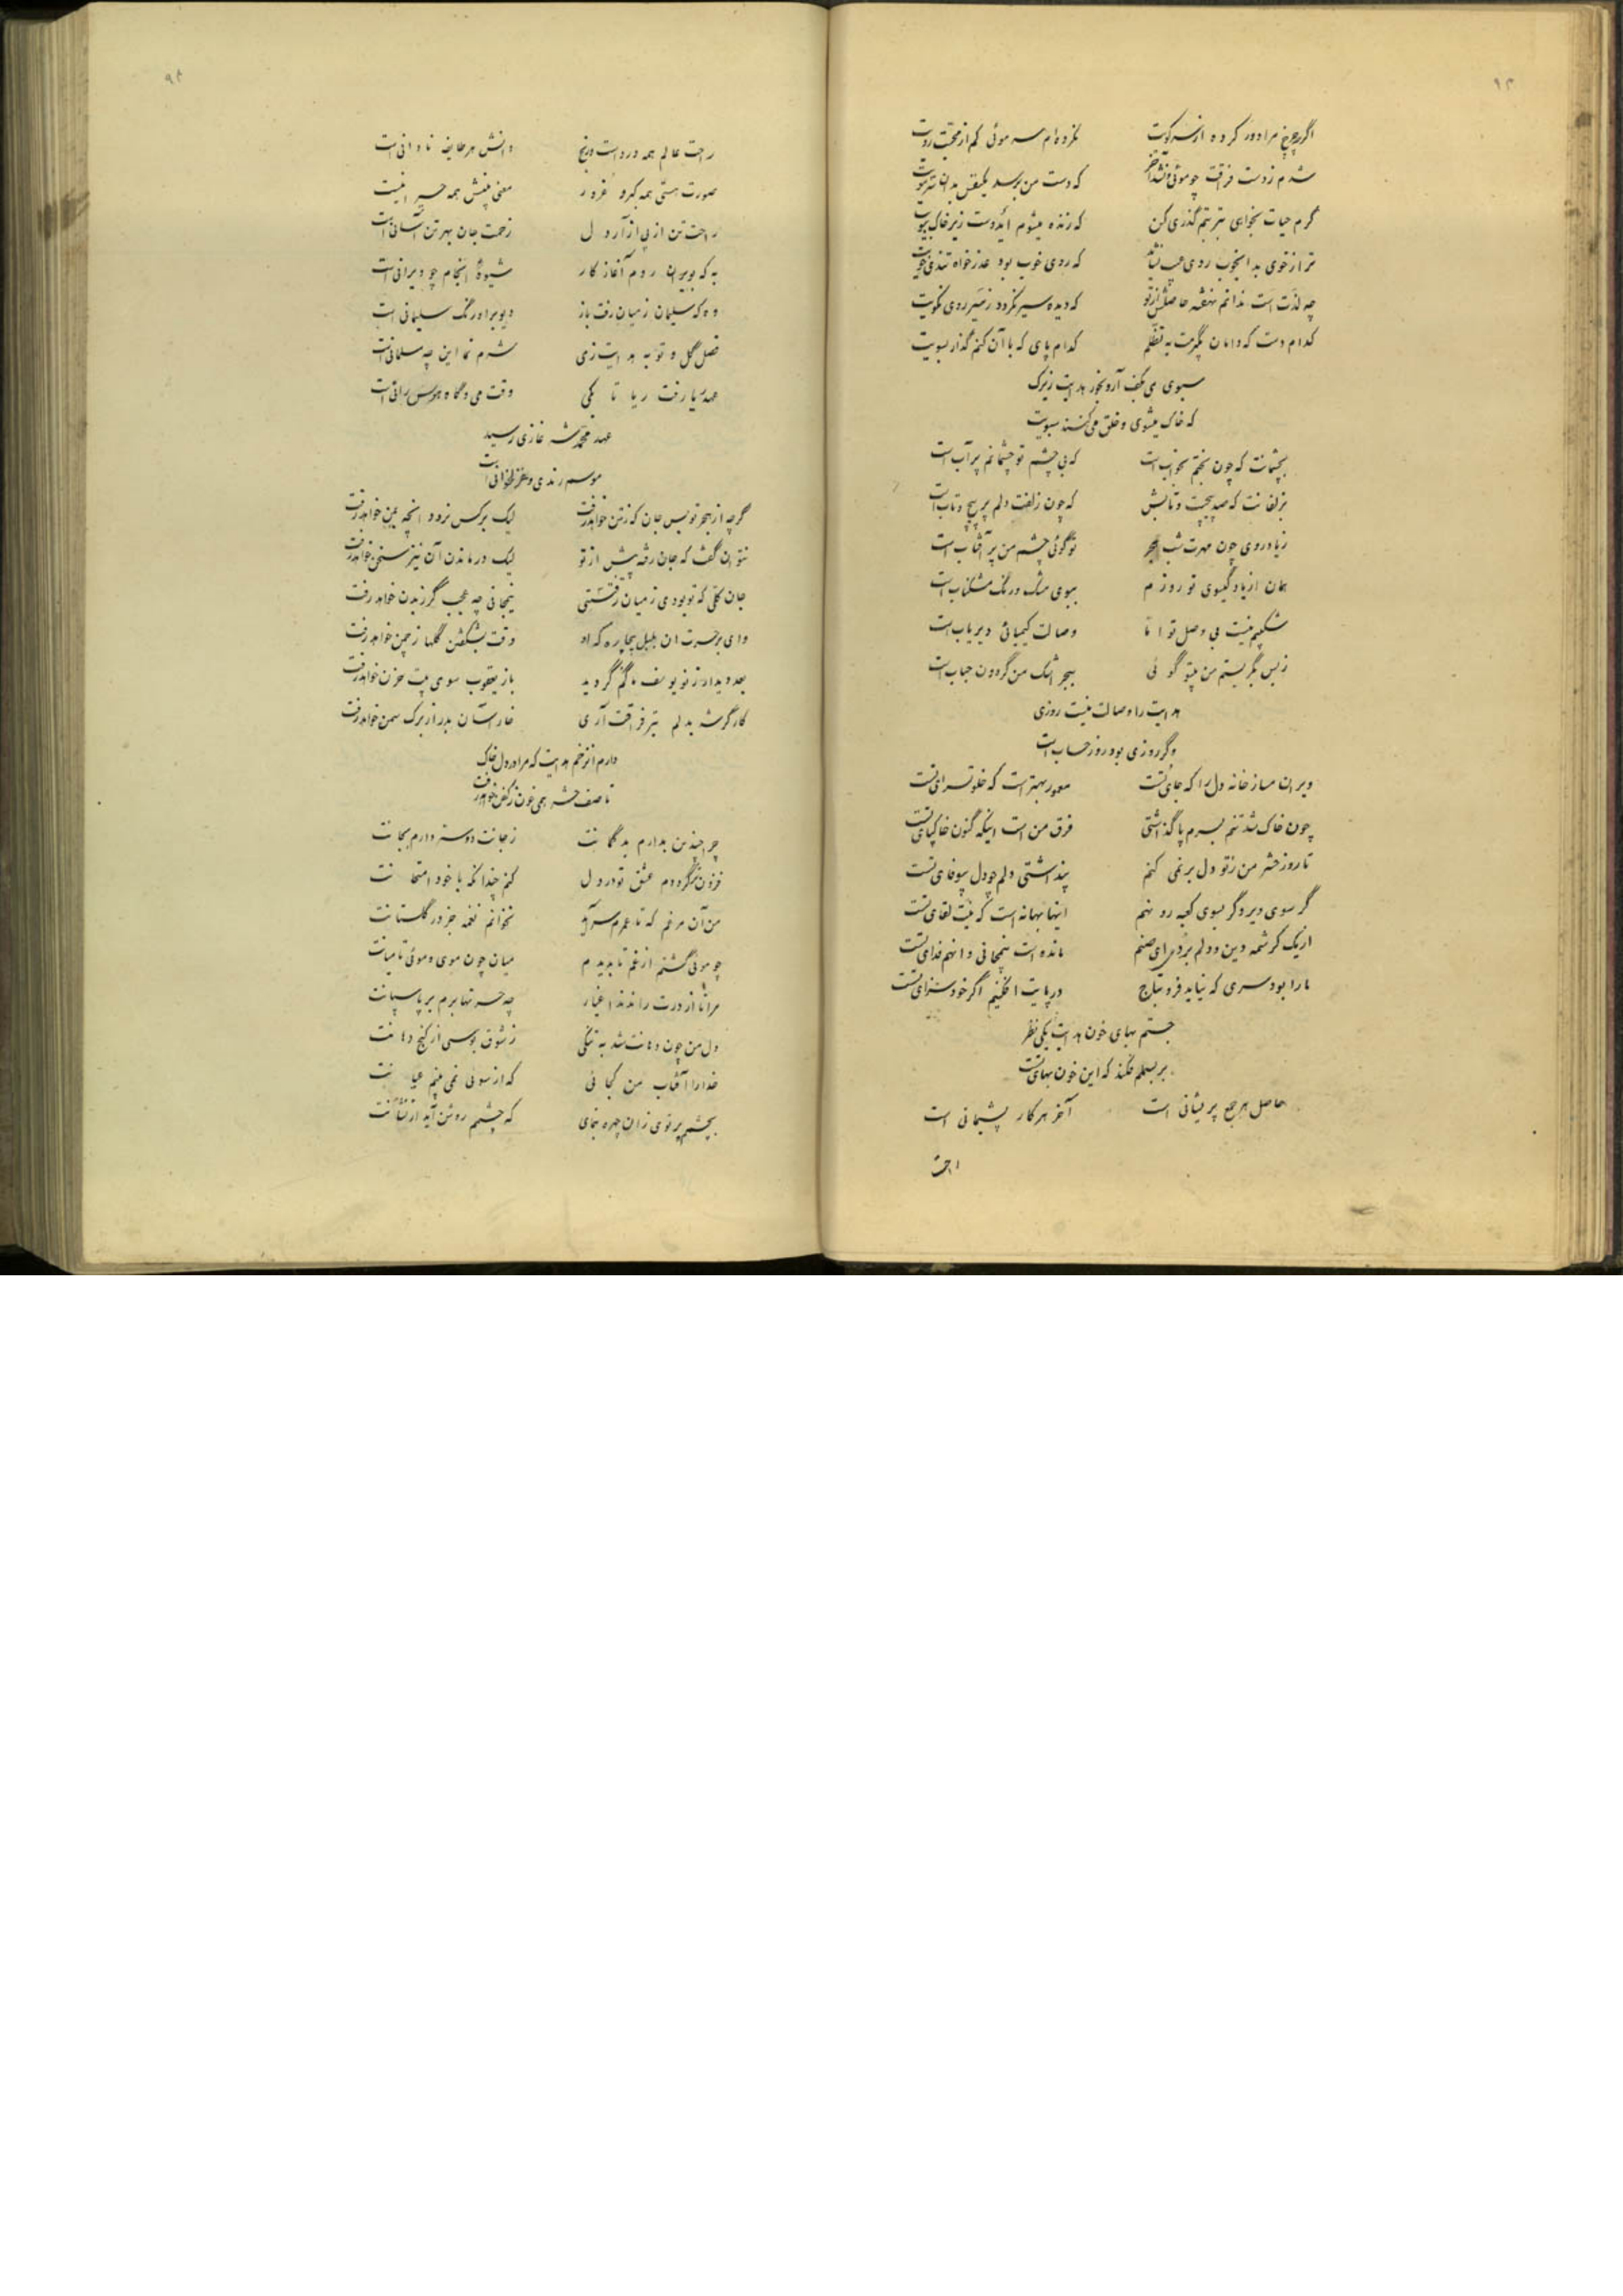 اگر چرخ مرا دور کرده از سر کویت نکرده‌ام سر موئی کم از محبت رویت
شدم ز دست فراقت چو موئی و نشد آخر که دست من برسد یکنفس بدان سر مویت
گرم حیات بخواهی بتربتم گذری کن که زنده میشوم ایدوست زیر خاک ببویت
ترا ز خوی بد ایخوب روی عیب نباشد که روی خوب بود عذرخواه تندی خویت
چه لذت است ندانم نهفته حاصلش از تو که دیده سیر نگردد ز سیر روی نکویت
کدام دست که دامان بگیرمت به تظلم کدام پای که با آن کنم گذار بسویت
سبوی می بکف آر و بخور هدایت زیرک
که خاک میشوی و خلق می‌کنند سبویت
بچشمانت که چون بختم بخواب است که بی چشم تو چشمانم پر آب است
بزلفانت که صد پیچست و تابش که چون زلفت دلم پر پیچ و تاب است
ز یاد روی چون مهرت شب هجر تو گوئی چشم من پر آفتاب است
همان از یاد گیسوی تو روزم ببوی مشک و رنگ مشکناب است
شکیبم نیست بی وصل تو اما وصالت کیمیائی دیریاب است
ز بس بگریستم من بیتو گوئی ببحر اشک من گردون حباب است
هدایت را وصالت نیست روزی
وگر روزی بود روز حساب است
ویران مساز خانه دل را که جای تست معمور بهتر است که خلوتسرای تست
چون خاک شد تنم بسرم پا گذاشتی فرق من است اینکه کنون خاکپای تست
تا روز حشر من ز تو دل بر نمی کنم پنداشتی دلم چو دل بیوفای تست
گر سوی دیر و گر بسوی کعبه رو نهم اینها بهانه است که نیت لقای تست
از یک کرشمه دین و دلم بردی ای صنم مانده است نیمجانی و انهم فدای تست
ما را بود سری که نیاید فرو بتاج در پایت افکنیم اگر خود سزای تست
جستم بهای خون هدایت یکی نظر
بر بسملم فکند که این خون بهای تست
حاصل هر جمع پریشانی است آخر هر کار پشیمانی است
راحت
راحت عالم همه درد است و رنج دانش هر طایفه نادانی است
صورت هستی همه کبر و غرور معنی بینش همه حیرانیست
راحت تن از پی آزار دل زحمت جان بهر تن آسانی است
به که بویران روم آغاز کار شیوهٔ انجام چو ویرانی است
وه که سلیمان ز میان رفت باز دیو بر اورنگ سلیمانی است
فصل گل و توبه هدایت ز می شرم نما این چه مسلمانی است
عهد ریا رفت ریا تا بکی وقت می و گاه هوس رانی است
عهد محمد شه غازی رسید
موسم رندی و غزلخوانی است
گرچه از هجر تو بس جان که ز تن خواهد رفت لیک بر کس نرود انچه بمن خواهد رفت
نتوان گفت که جان رفته پیش از تو لیک در ماندن آن نیز سخن خواهد رفت
جان کلی که تو بودی ز میان رفتستی نیمجانی چه عجب گر ز بدن خواهد رفت
وای بر حسرت ان بلبل بیچاره که او وقت بشکفتن گلها ز چمن خواهد رفت
بعد دیدار ز نو یوسف ما گم گردید باز یعقوب سوی بیت حزن خواهد رفت
کارگر شد بدلم تیر فراقت آری خار آسان بدر از برک سمن خواهد رفت
دارم از زخم هدایت که مرا در دل خاک
تا صف حشر همی خون ز کفن خواهد رفت
چرا چندین بدارم بدگمانت ز جانت دوستر دارم بجانت
فزون میگرددم عشق تو در دل کنم چندانکه با خود امتحانت
من آن مرغم که تا عمرم سرآید نخوانم نغمه جز در گلستانت
چو موئی گشتم از غم تا بدیدم میان چون موی و موئی تا میانت
مرا تا از درت راندند اغیار چه حسرتها برم بر پاسبانت
دل من چون دهانت شد به تنگی ز شوق بوسی از کنج دهانت
خدا را آفتاب من کجائی که از سوئی نمی بینم عیانت
بچشمم پرتوی زان چهره بنمای که چشمم روشن آید از نشانت